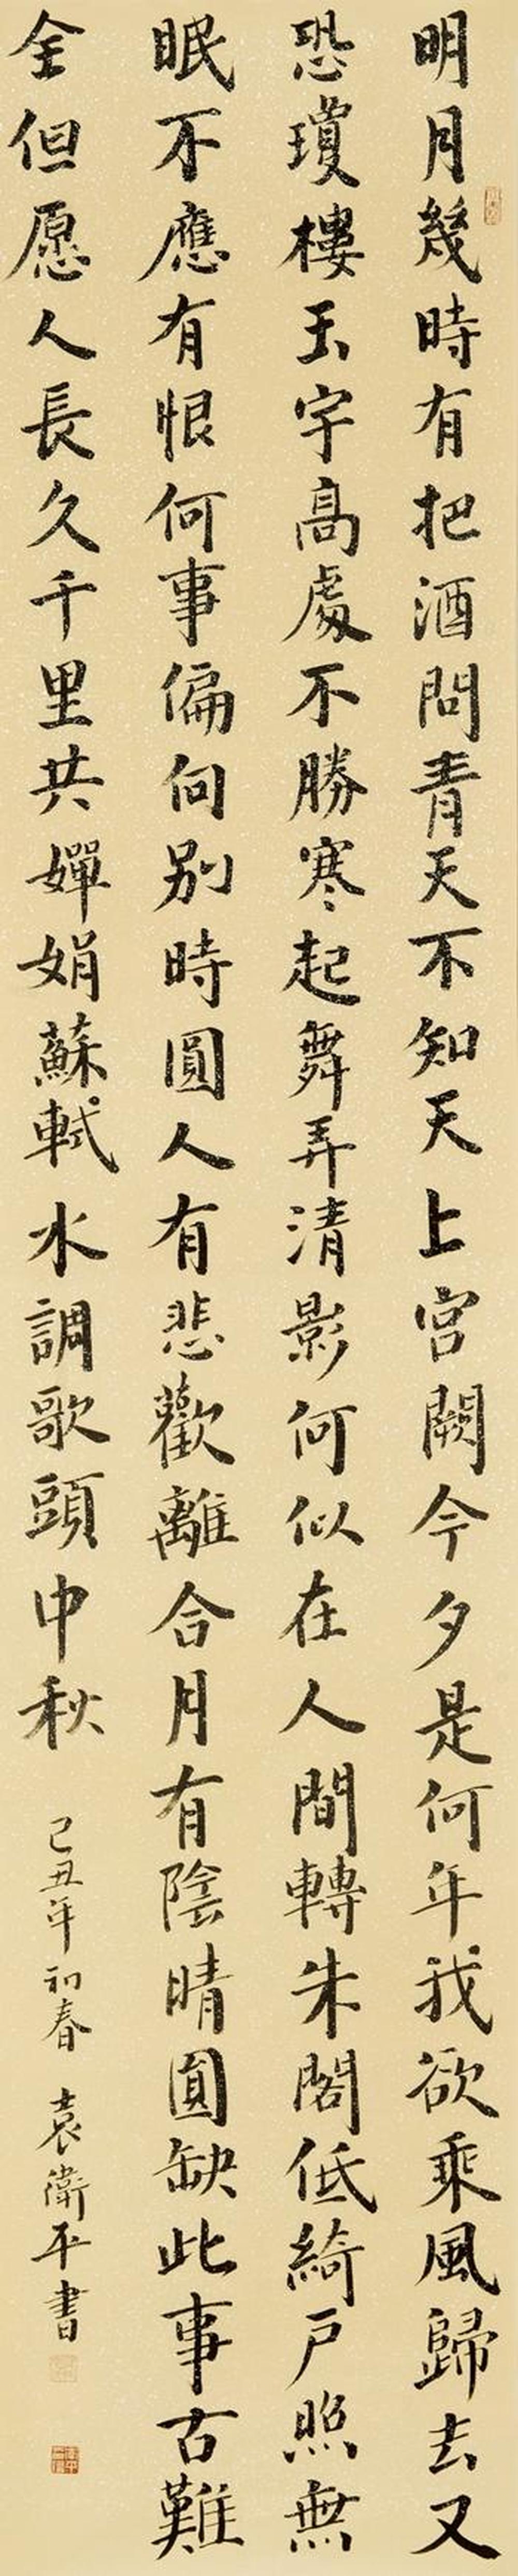 明月幾時有把酒問青天不知天上宮闕今夕是何年我欲乘風歸去又
恐瓊樓玉宇高處不勝寒起舞弄清影何似在人間轉朱閣低綺戶照無
眠不應有恨何事偏向別時圓人有悲歡離合月有陰晴圓缺此事古難
全但愿人長久千里共嬋娟蘇軾水調歌頭中秋
己丑年初春 袁衛平書